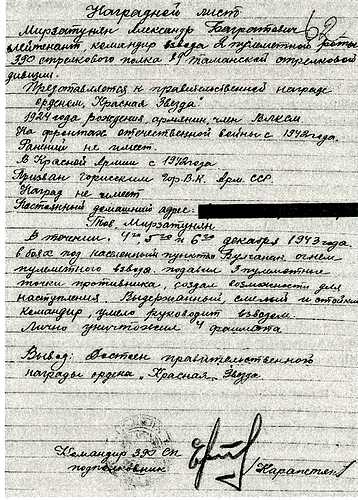 Наградной лист
62
Мирзатунян Александр Багратович
лейтенант командир взвода 2 пулеметной роты
390 стрелкового полка 89 Таманской стрелковой
дивизии.
Представляется к правительственной награде
орденом „Красная Звезда"
1924 года рождения, армянин, член ВЛКСМ
На фронтах отечественной войны с 1942 года.
Ранений не имеет.
В Красной Армии с 1942 года
Призван горисским Гор.В.К. Арм. ССР
Наград не имеет
Постоянный домашний адрес:
Тов. Мирзатунян
В течении 4го 5го и 6го декабря 1943 года
в боях под населенный пункта Булганак огнем
пулеметного взвода подавил 3 пулеметные
точки противника, создал возможности для
наступления. Выдержанный, смелый и стойкий
командир, умело руководит взводом.
Лично уничтожил 4 фашиста
Вывод: Достоен правительственного
награды ордена „Красная Звезда
Командир 390 СП
подполковник
/Карапетян/